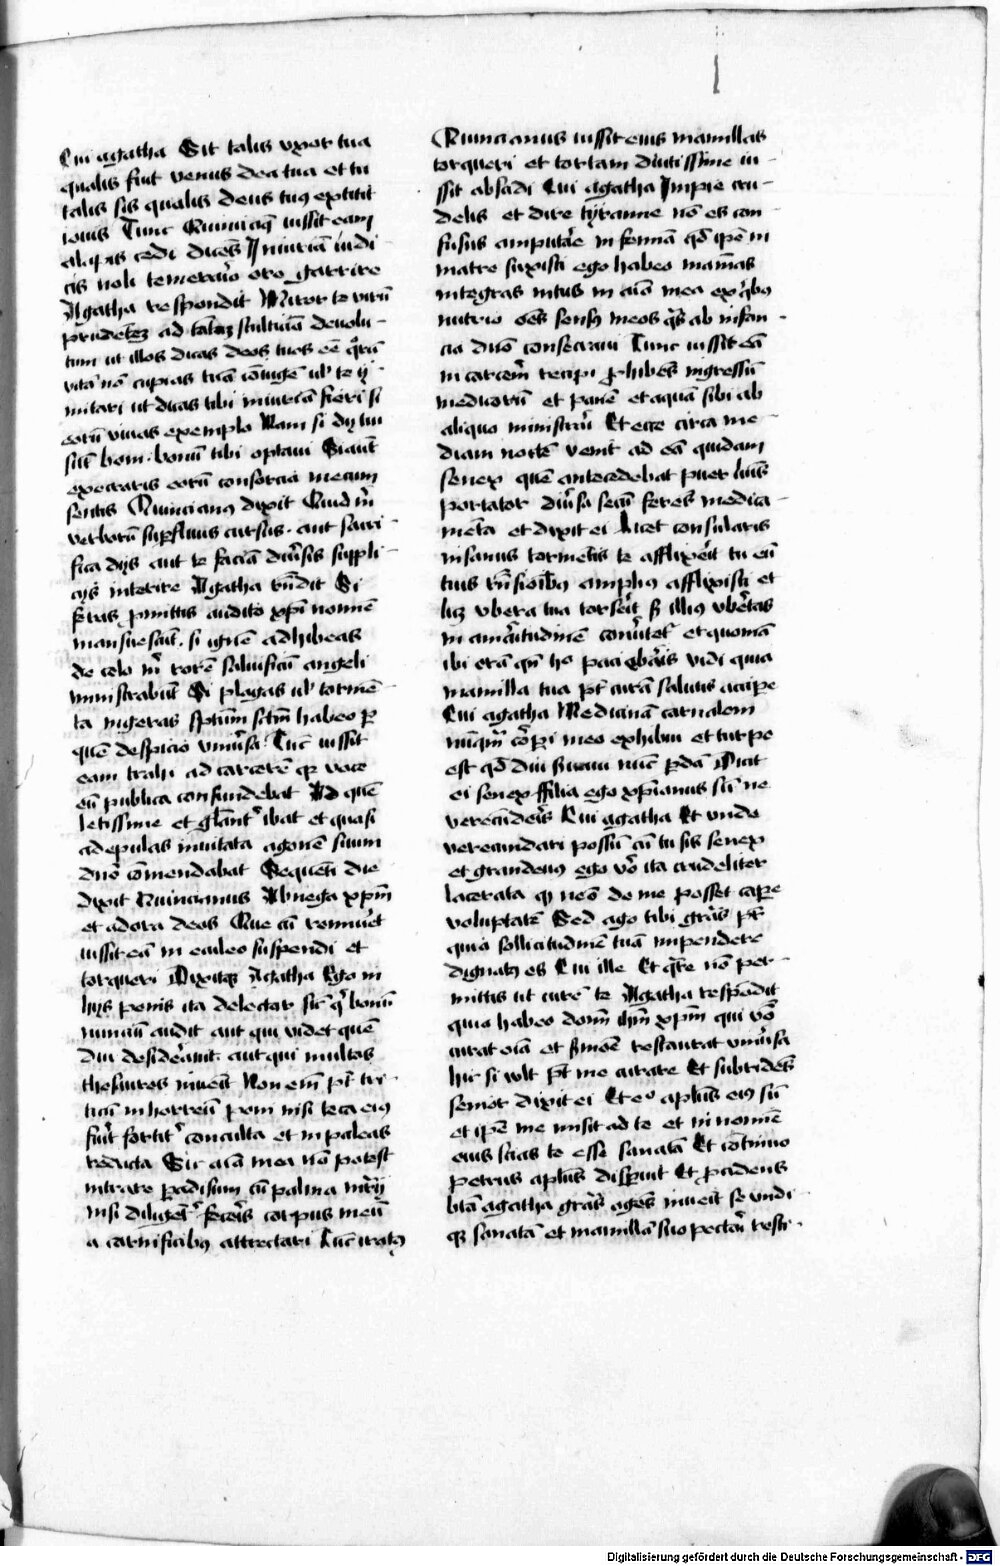 Cui agatha Sit talis vxor tua
qualis fuit venus dea tua et tu
talis sis qualis deus tuus extitit
iouis Tunc Quincianus iussit eam
alapis cedi dicens Iniuriam iudi-
cis noli temerario ore garrire
Agatha respondit Miror te virum
prudentem ad tantam stulticiam deuolu-
tum ut illos dicas deos tuos esse quorum
vitam non cupias tuam coniugem uel te ij-
mitari ut dicas tibi iniuriam fieri si
eorum viuas exemplo Nam si dij tui
sunt boni. bonum tibi optaui Si autem
execraris eorum consorcia mecum
sentis Quincianus dixit Quid michi
verborum superfluus cursus. aut sacri-
fica dijs aut te faciam diuersis suppli-
cijs interire Agatha respondit Si
feras promittis audito christi nomen
mansuescunt. si ignem adhibeas
de celo michi rorem saluificum angeli
ministrabunt Si plagas uel tormen-
ta ingeras spiritum sanctum habeo per
quem despicio vniuersa. Tunc iussit
eam trahi ad carcerem quia voce
eum publica confundebat Ad quem
letissime et glorianter ibat et quasi
ad epulas inuitata agonem suum
domino commendabat Sequenti die
dixit Quincianus Abnega christum
et adora deos Que cum renuerit
iussit eam in eculeo suspendi et
torqueri Dixitque Agatha Ego in
hijs penis ita delector sicut qui bonum
nuncium audit aut qui videt quem
diu desiderauit. aut qui multos
thesauros inuenit Non enim potest tri-
ticum in horreum poni nisi teca eius
fuerit fortiter conculta et in paleas
redacta Sic anima mea non potest
intrare paradisum cum palma martirij
nisi diligenter feceris corpus meum
a carnificibus attrectari Tunc iratus
Quincianus iussit eius mamillas
torqueri et tortam diutissime iu-
ssit abscidi Cui agatha Impie cru-
delis et dire tyranne non es con
fusus amputare in femina quod ipse in
matre suxisti ego habeo mammas
integras intus in anima mea ex quibus
nutrio omnes sensus meos quas ab infan-
cia domino consecraui Tunc iussit eam
in carcerem recipi prohibens ingressum
medicorum et panem et aquam sibi ab
aliquo ministrari Et ecce circa me-
diam noctem venit ad eam quidam
senex quem antecedebat puer luminis
portator diuersa secum ferens medica-
menta et dixit ei Licet consularis
insanus tormentis te afflixerit tu eum
tuis responsionibus amplius afflixisti et
licet vbera tua torserit sed illius vbertas
in amaritudinem conuertetur et quoniam
ibi eram quando hec pacieb̄aris vidi quia
mamilla tua potest curam salutis accipere
Cui agatha Medicinam carnalem
nunquam corpori meo exhibui et turpe
est quod diu seruaui nunc perdam Dicit
ei senex filia ego christianus sum ne
verecunderis Cui agatha Et unde
verecundari possum cum tu sis senex
et grandeuus ego vero ita crudeliter
lacerata quod nemo de me posset capere
voluptatem Sed ago tibi gracias pater
quia sollicitudinem tuam impendere
dignatus es Cui ille Et quare non per-
mittis ut curem te Agatha respondit
quia habeo dominum ihesum christum qui verbo
curat omnia et sermone restaurat vniuersa
hic si vult potest me curare Et subridens
senior dixit ei Et ego apostolus eius sum
et ipse me misit ad te et in nomine
eius scias te esse sanatam Et continuo
petrus apostolus disparuit Et procidens
beata agatha gracias agens inuenit se vndi-
que sanatam et mamillam suo pectori resti-
Digitalisierung gefördert durch die Deutsche Forschungsgemeinschaft - DFG